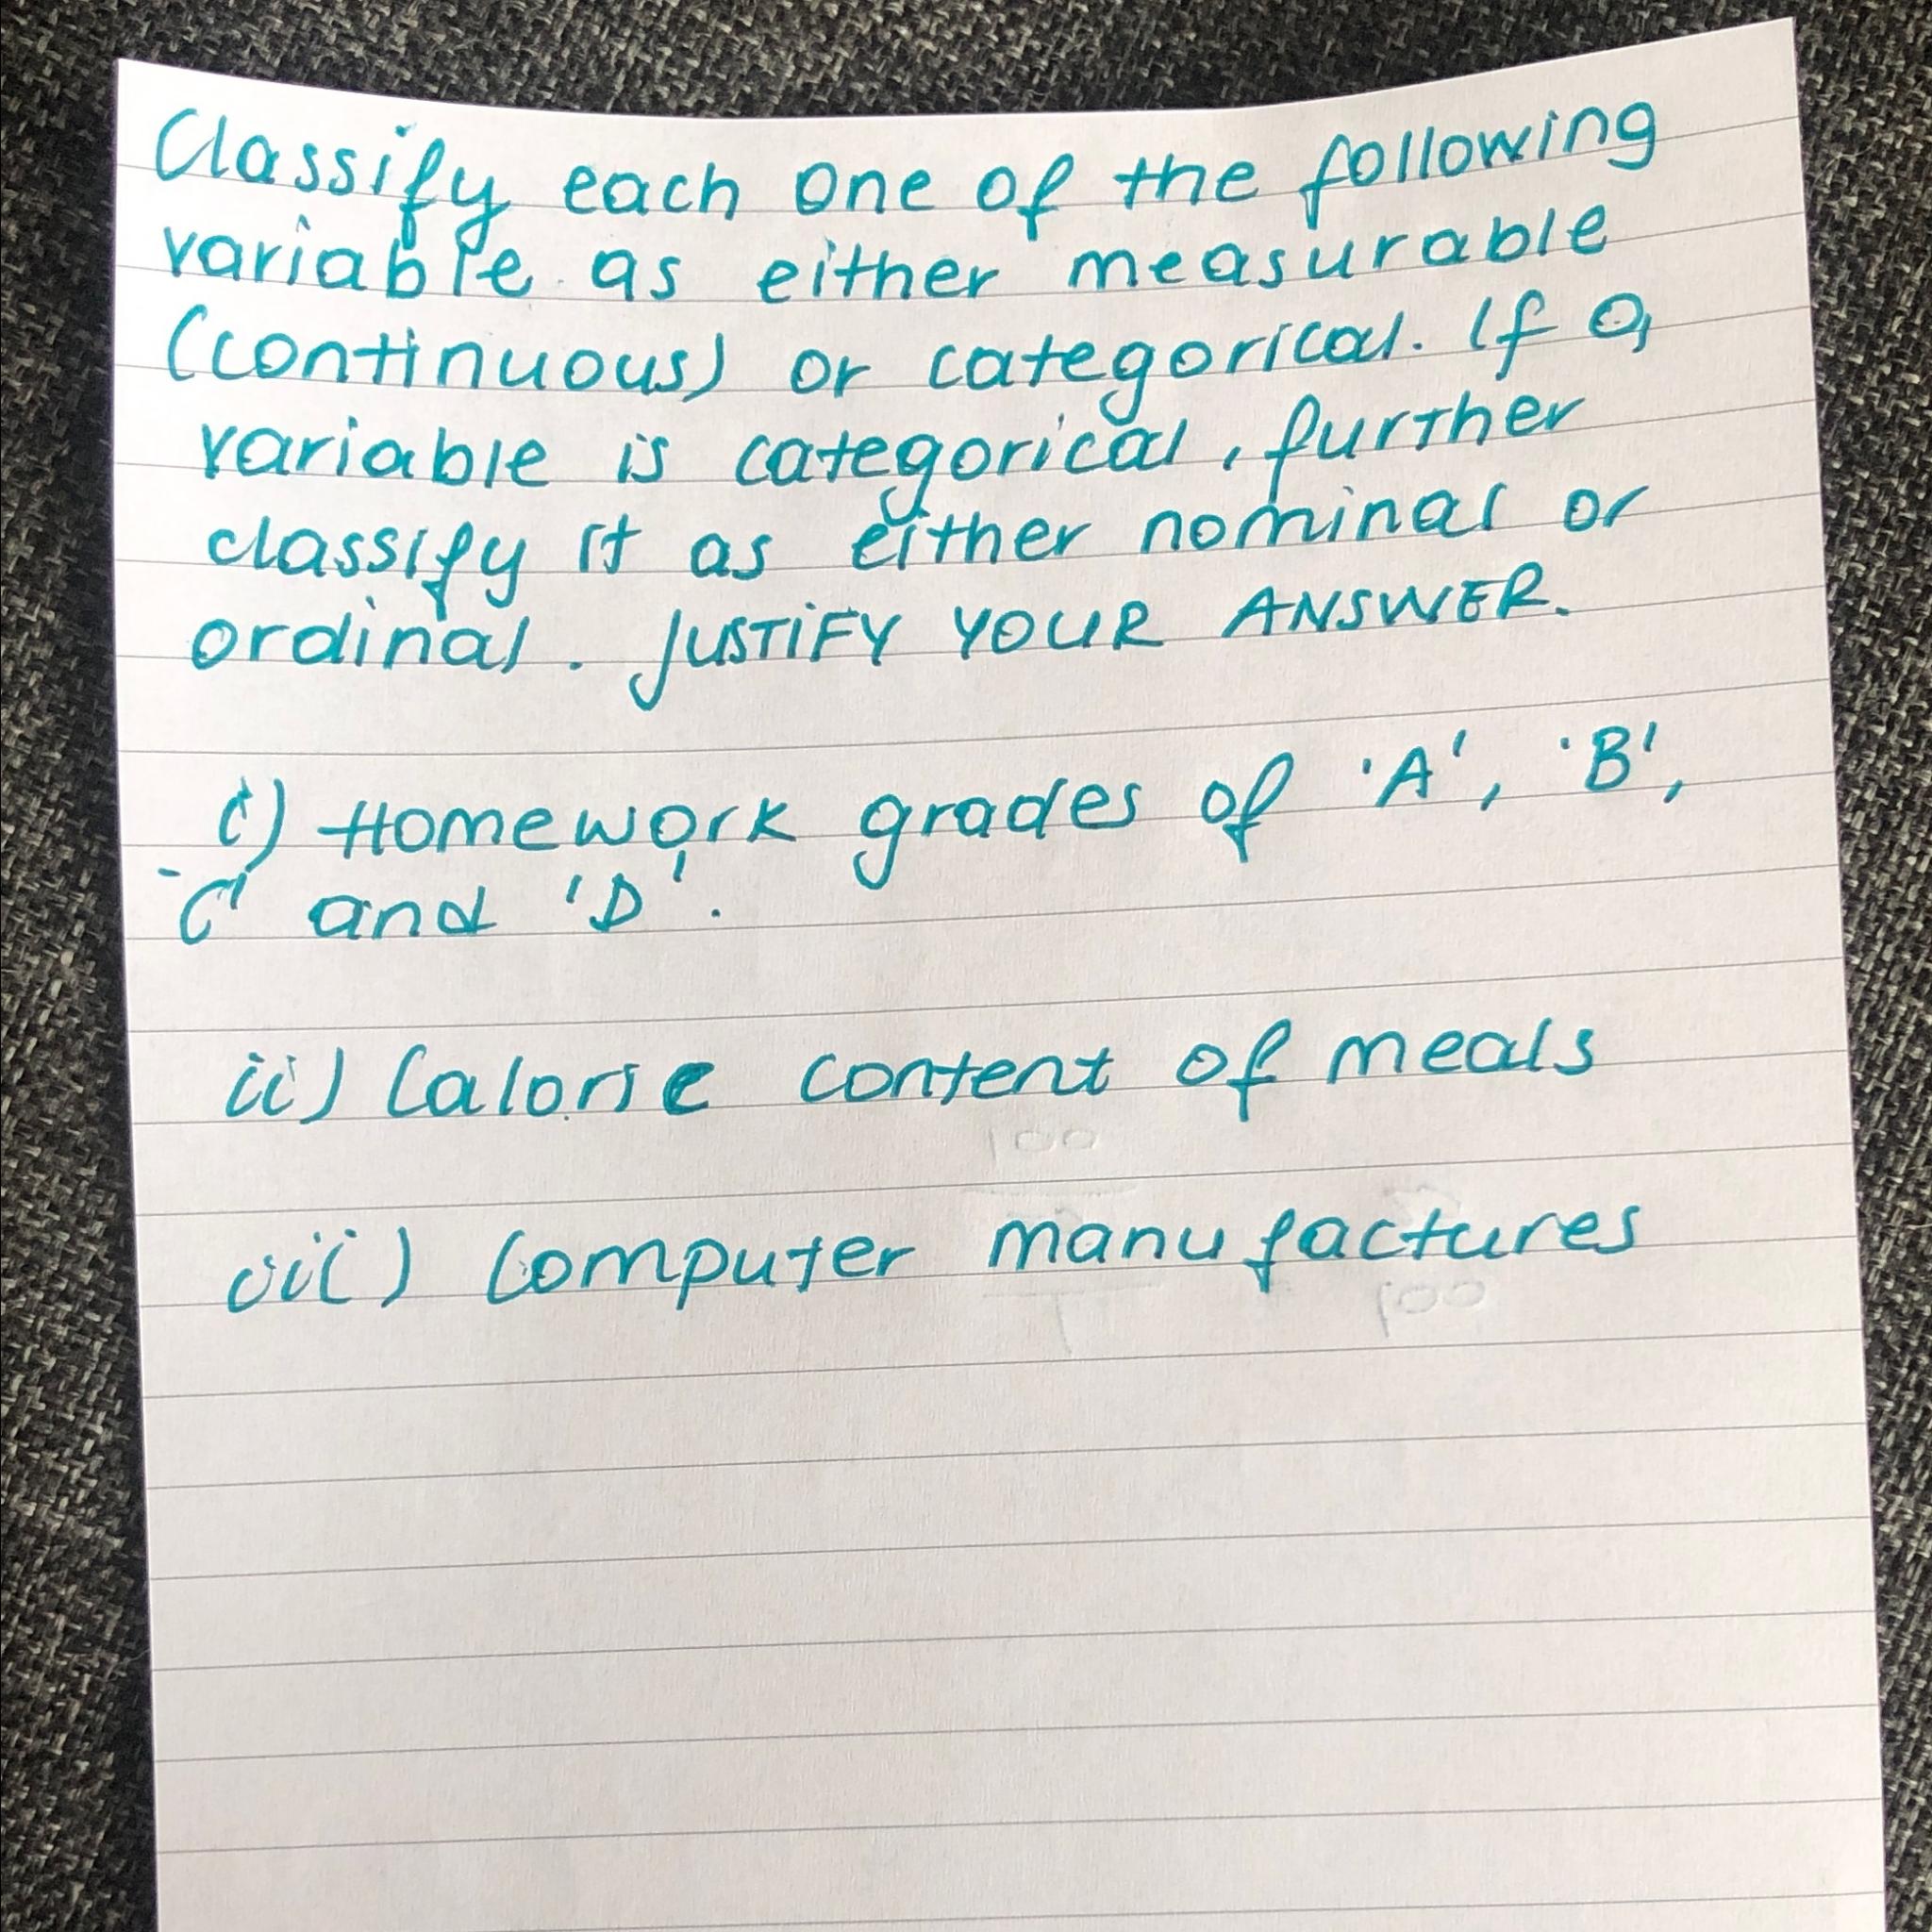 Classify each one of the following
variable as either measurable
(continuous) or categorical. If a
variable is categorical, further
classify it as either nominal or
ordinal. JUSTIFY YOUR ANSWER.
i) Homework grades of 'A', 'B',
'C' and 'D'.
ii) Calorie content of meals
iii) Computer manufactures